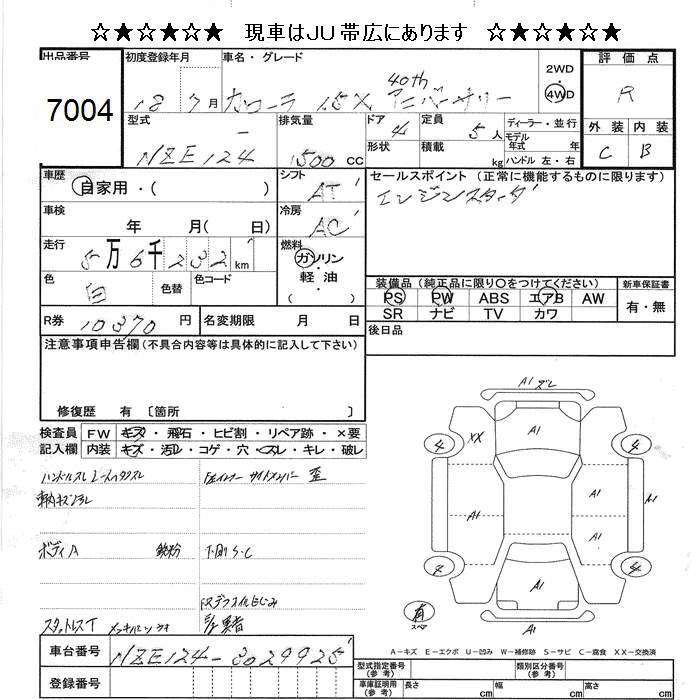 ☆★☆★☆★☆ 現車はJU帯広にあります ☆★☆★☆★☆
出品番号 7004
初度登録年月 18 7月
車名・グレード カローラ 1.5X 40th アニバーサリー
2WD ・ 4WD
評価点 R
外装 内装
C B
型式 NZE124
排気量 1500 CC
ドア 4
形状
定員 5人
積載 kg
ディーラー・並行
モデル年式 年
ハンドル 左・右
車歴 自家用・( )
シフト AT
セールスポイント (正常に機能するものに限ります)
エンジンスターター
車検 年 月( 日)
冷房 AC
走行 5万6千232km
燃料 ガソリン・軽油
色 白 色替 色コード
装備品 (純正品に限り○をつけてください)
PS PW ABS エアB AW
SR ナビ TV カワ
新車保証書
有・無
R券 10370円 名変期限 月 日
後日品
注意事項申告欄(不具合内容等は具体的に記入して下さい)
修復歴 有 〔箇所 〕
検査員記入欄
FW キズ・飛石・ヒビ割・リペア跡・×要
内装 キズ・汚レ・コゲ・穴・スレ・キレ・破レ
ボディA 鉄粉
下廻S.C
スタットレスT
車台番号 NZE124-3029925
登録番号
A1 ズレ
A1
XX
4
4
A1
A1
A1
A1
A1
4
A1
有
スペア
A1
A-キズ E-エクボ U-凹み W-補修跡 S-サビ C-腐食 XX-交換済
型式指定番号(参考)
類別区分番号(参考)
車庫証明用(参考) 長さ cm 幅 cm 高さ cm